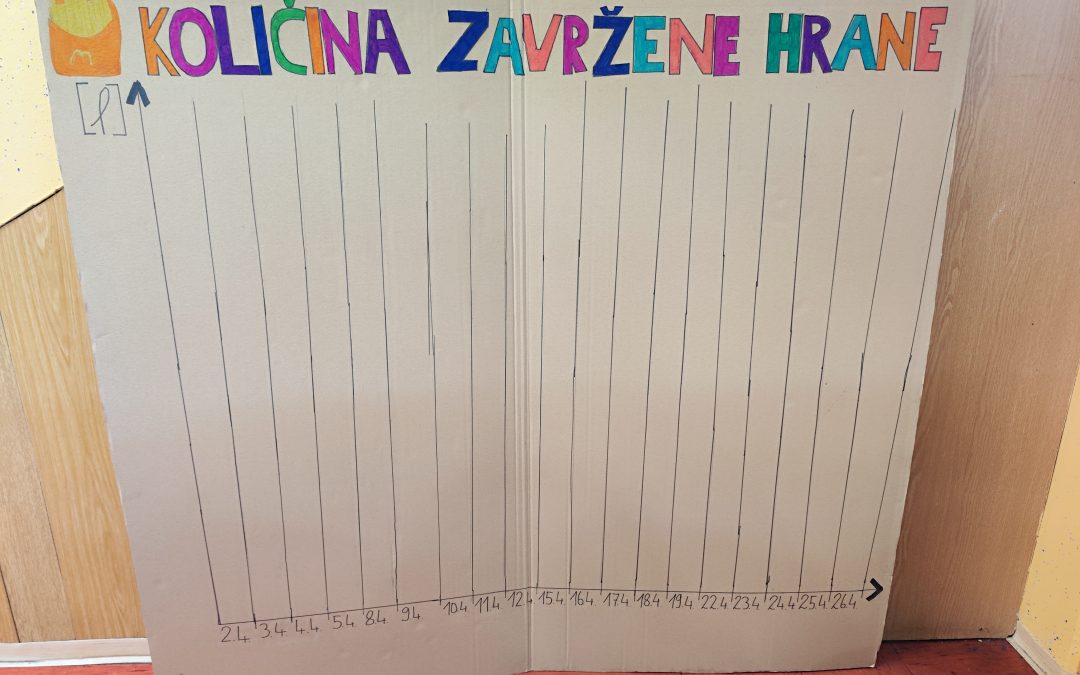 KOLIČINA ZAVRŽENE HRANE
[l]
2.4 3.4 4.4 5.4 8.4 9.4 10.4 11.4 12.4 15.4 16.4 17.4 18.4 19.4 22.4 23.4 24.4 25.4 26.4